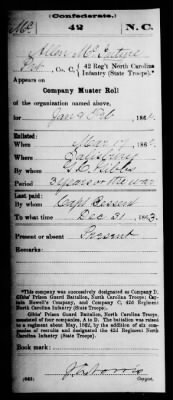 (Confederate.)
Mc 42 N.C.
Allen McEntire
Pvt., Co. C, 42 Reg't North Carolina
Infantry (State Troops).*
Appears on
Company Muster Roll
of the organization named above,
for Jan & Feb, 1864.
Enlisted:
When Mar 17, 186
Where Salisbury
By whom G. C. Gibbs
Period 3 years or the war
Last paid:
By whom Capt
To what time Dec 31, 1863.
Present or absent Present
Remarks:
*This company was successively designated as Company D,
Gibbs' Prison Guard Battalion, North Carolina Troops; Captain
Howell's Company, and Company C, 42d Regiment
North Carolina Infantry (State Troops).
Gibbs' Prison Guard Battalion, North Carolina Troops,
consisted of four companies, A to D. The battalion was
raised to a regiment about May, 1862, by the addition of six companies
of recruits and designated the 42d Regiment North
Carolina Infantry (State Troops).
Book mark:
(642)
Copyist.